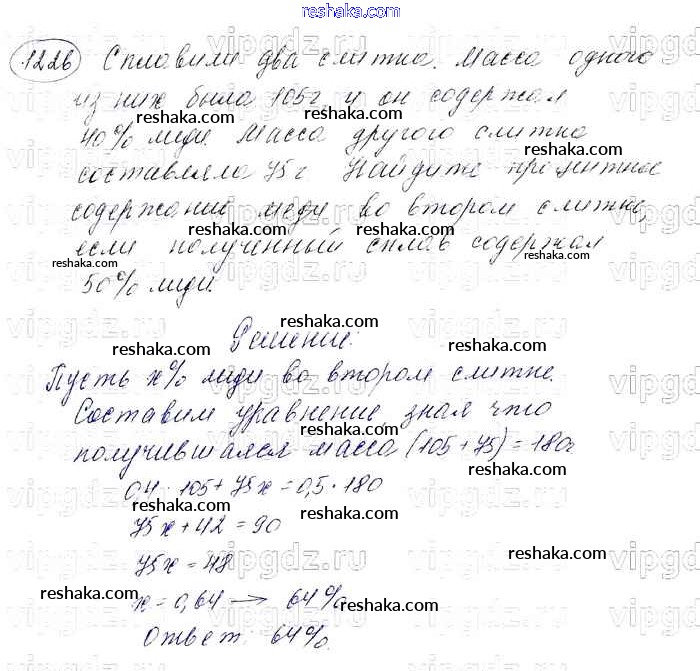 reshaka.com
1226 Сплавили два слитка. Масса одного
из них была 105 г и он содержал
40% меди. Масса другого слитка
составляла 75 г Найдите процентное
содержание меди во втором слитке
если полученный сплав содержал
50% меди.
Решение:
Пусть x% меди во втором слитке.
Составим уравнение зная что
получившаяся масса (105 + 75) = 180г
0,4 · 105 + 75x = 0,5 · 180
75x + 42 = 90
75x = 48
x = 0,64 → 64%
Ответ: 64%.